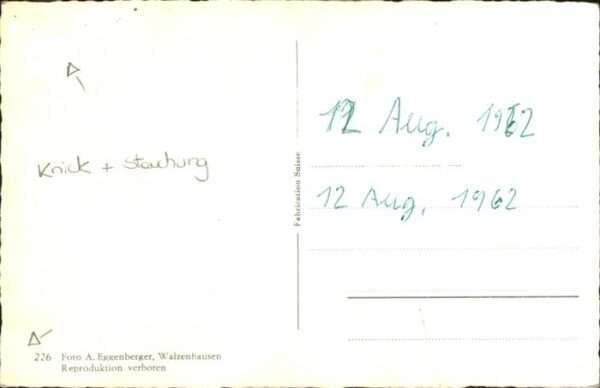 Knick + Stauchung
12 Aug. 1962
12 Aug. 1962
Fabrication Suisse
226 Foto A. Eggenberger, Walzenhausen
Reproduktion verboten